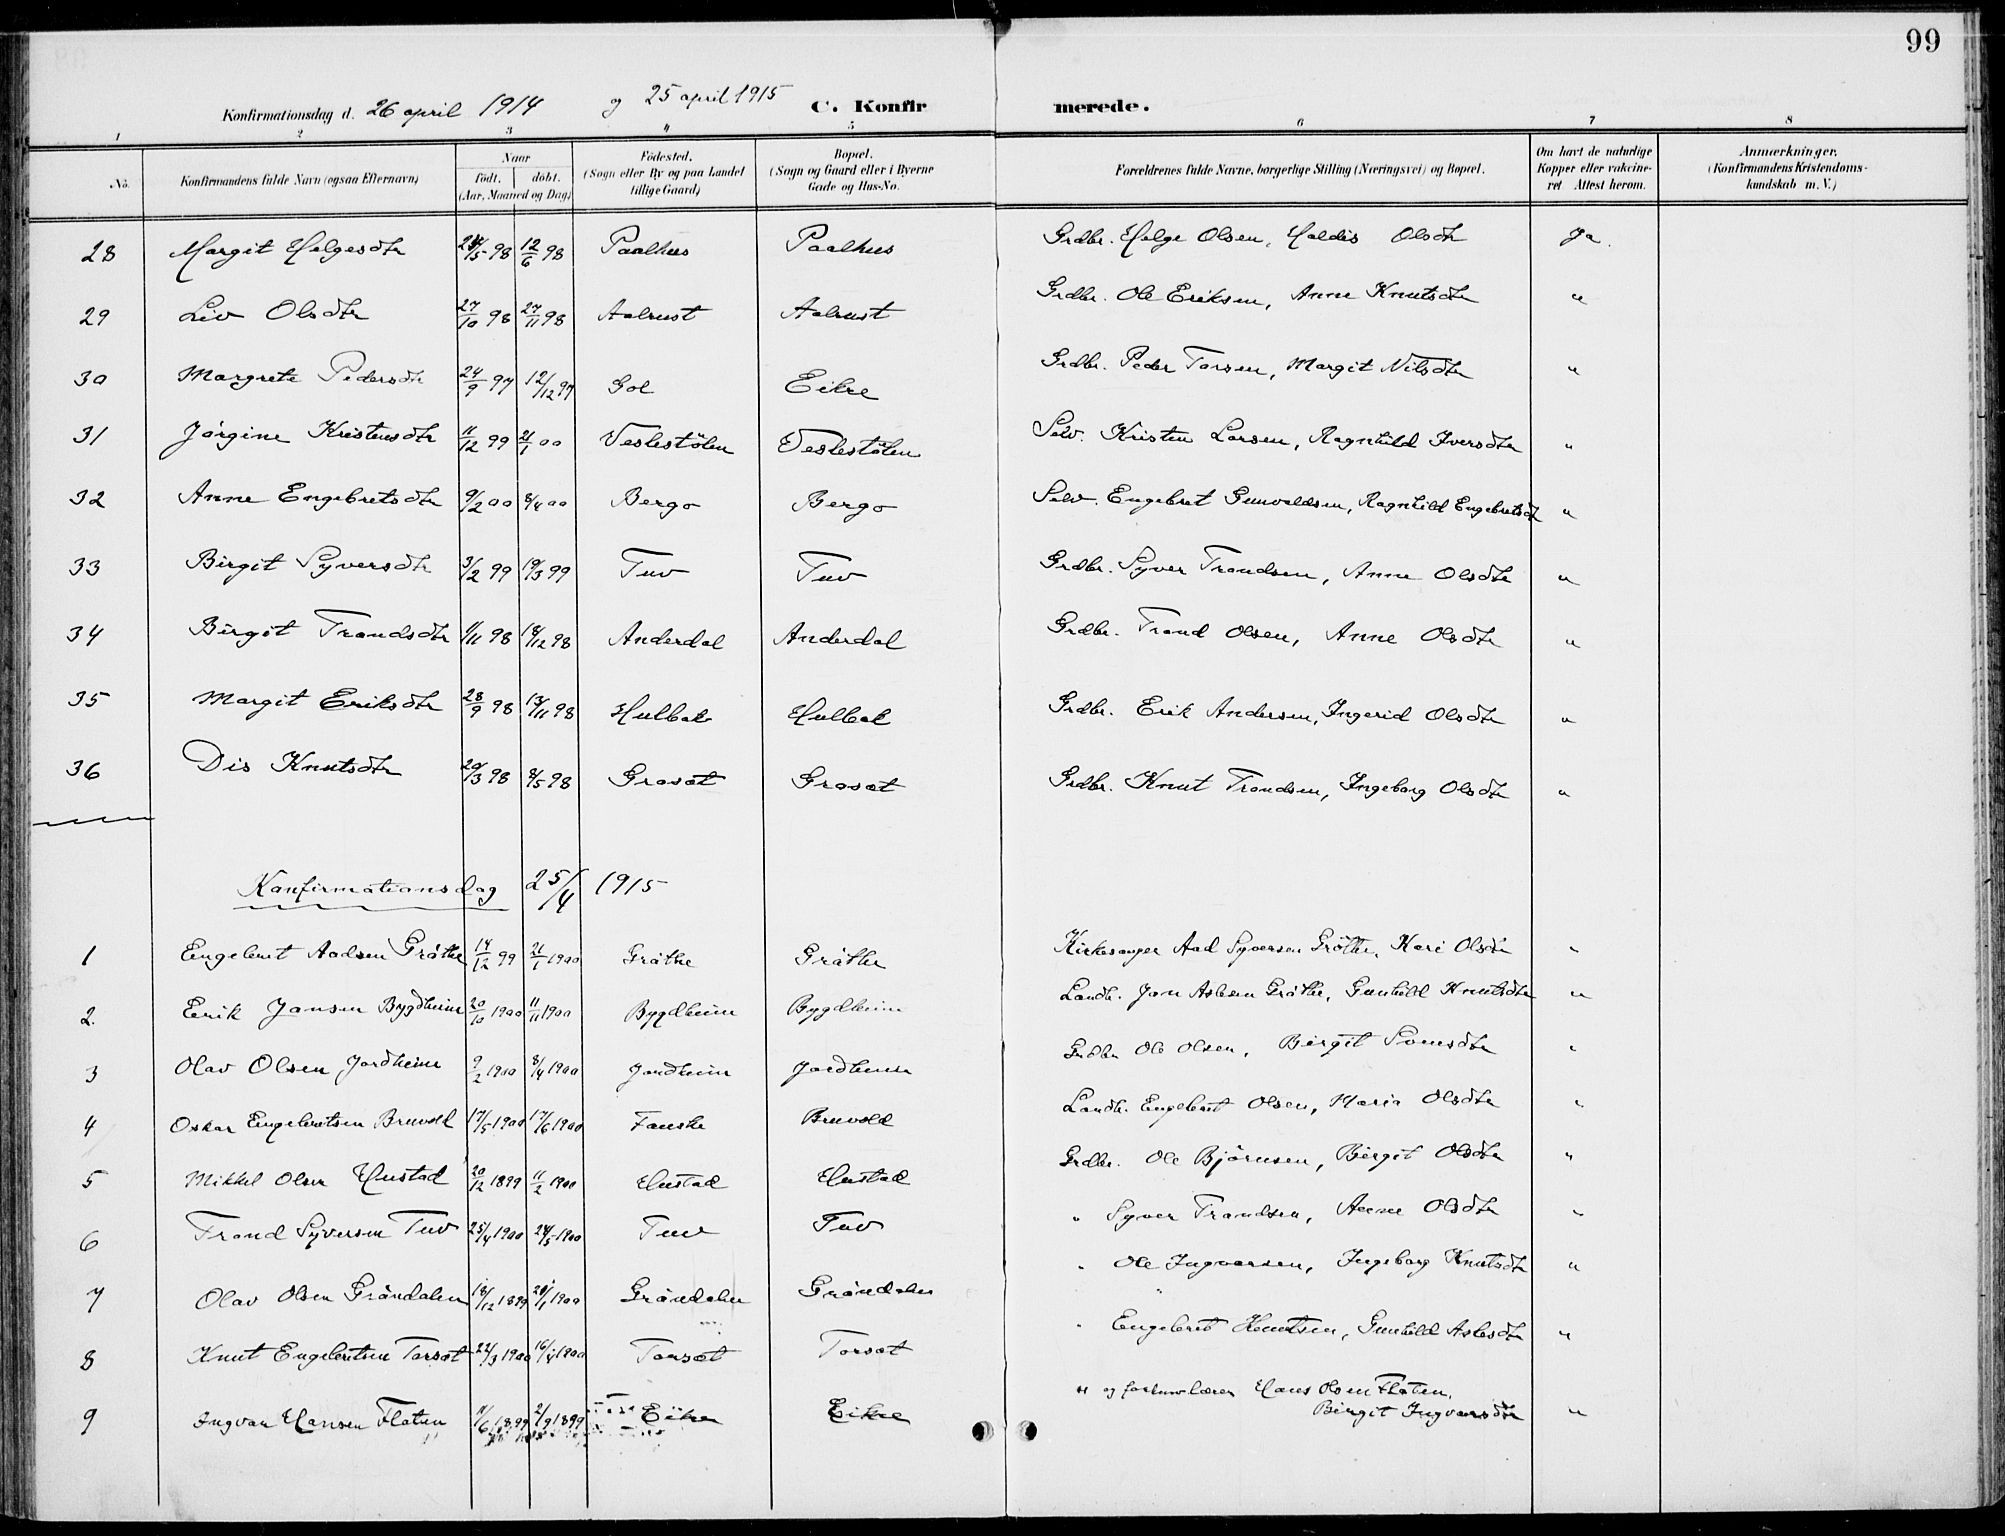 99
Konfirmationsdag d. 26 april 1914 og 25 april 1915 C. Konfirmerede.
1 2 3 4 5 6 7 8
No. Konfirmandens fulde Navn (ogsaa Efternavn) Naar født. døbt. (Aar, Maaned og Dag) Fødested. (Sogn eller By og paa Landet tillige Gaard) Bopæl. (Sogn og Gaard eller i Byerne Gade og Hus-No. Forældrenes fulde Navne, borgerlige Stilling (Næringsvei) og Bopæl. Om havt de naturlige Kopper eller vakcineret Attest herom. Anmærkninger. (Konfirmandens Kristendomskundskab m. V.)
28 Margit Helgesdtr 24/5 98 12/6 98 Paalhus Paalhus Grdbr. Helge Olsen, Haldis Olsdtr Ja.
29 Liv Olsdtr 27/10 98 27/11 98 Aalrust Aalrust Grdbr. Ole Eriksen, Anne Knutsdtr "
30 Margrete Pedersdtr 24/9 97 12/12 97 Gol Eikre Grdbr. Peder Torsen, Margit Nilsdtr "
31 Jørgine Kristensdtr 11/12 99 21/1 00 Veslestölen Veslestölen Selv. Kristen Larsen, Ragnhild Iversdtr "
32 Anne Engebretsdtr 9/2 00 8/4 00 Bergo Bergo Selv. Engebret Gunvaldsen, Ragnhild Engebretsdt "
33 Birgit Syversdtr 3/2 99 19/3 99 Tuv Tuv Grdbr. Syver Trondsen, Anne Olsdtr "
34 Birgit Trondsdtr 1/11 98 18/12 98 Anderdal Anderdal Grdbr. Trond Olsen, Anne Olsdtr "
35 Margit Eriksdtr 28/9 98 13/11 98 Hulbak Hulbak Grdbr. Erik Andersen, Ingerid Olsdtr "
36 Dis Knutsdtr 20/3 98 8/5 98 Grøsøt Grøsøt Grdbr. Knut Trondsen, Ingeborg Olsdtr "
Konfirmationsdag 25/4 1915
1 Engebret Aadsen Gröthe 14/12 99 21/1 1900 Gröthe Gröthe Kirkesanger Aad Syversen Gröthe, Kari Olsdtr "
2. Eirik Jonsen Bygdheim 20/10 1900 11/11 1900 Bygdheim Bygdheim Landh. Jon Aslesen Gröthe, Gunhild Knutsdtr "
3 Olav Olsen Jordheim 9/2 1900 8/4 1900 Jordheim Jordheim Grdbr Ole Olsen, Birgit Svensdtr "
4 Oskar Engebretsen Bruvold 17/5 1900 17/6 1900 Fauske Bruvold Landh. Engebret Olsen, Maria Olsdtr "
5 Mikkel Olsen Hustad 20/12 1899 11/2 1900 Hustad Hustad Grdbr. Ole Björnsen, Birgit Olsdtr "
6 Trond Syversen Tuv 25/4 1900 24/5 1900 Tuv Tuv " Syver Trondsen, Anne Olsdtr "
7 Olav Olsen Gröndalen 18/12 1899 28/1 1900 Gröndalen Gröndalen " Ole Ingvarsen, Ingeborg Knutsdtr "
8 Knut Engebretsen Torsøt 22/3 1900 16/4 1900 Torsøt Torsøt " Engebret Knutsen, Gunhild Aslesdtr "
9 Ingvar Hansen Flaten 11/6 1899 2/9 1899 Eikre Eikre " og Hans Olsen Flaten, Birgit Ingvarsdtr "